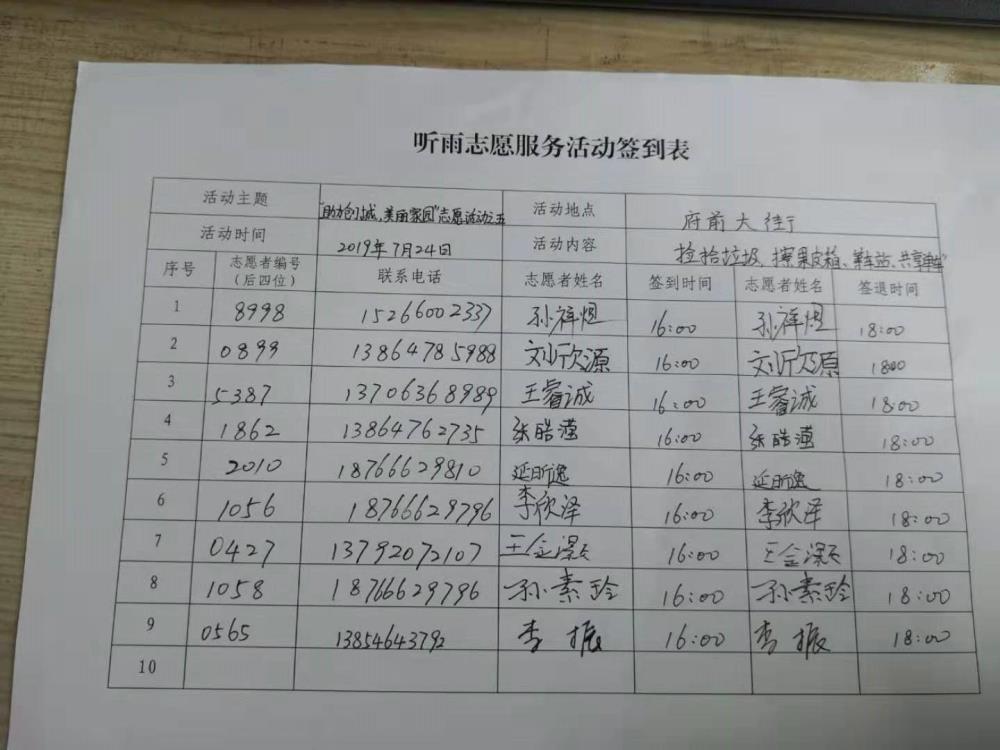 听雨志愿服务活动签到表
活动主题 "助力创城,美丽家园"志愿活动之五 活动地点 府前大街
活动时间 2019年7月24日 活动内容 捡拾垃圾、擦果皮箱、单车站、共享单车
序号 志愿者编号(后四位) 联系电话 志愿者姓名 签到时间 志愿者姓名 签退时间
1 8998 15266002337 孙祥煜 16:00 孙祥煜 18:00
2 0899 13864785988 刘欣源 16:00 刘欣源 1800
3 5387 13706368989 王睿诚 16:00 王睿诚 18:00
4 1862 13864762735 张皓 16:00 张皓 18:00
5 2010 18766629810 延昕逸 16:00 延昕逸 18:00
6 1056 18766629796 李欣泽 16:00 李欣泽 18:00
7 0427 13792072107 王金 16:00 王金 18:00
8 1058 18766629796 孙素玲 16:00 孙素玲 18:00
9 0565 13854643792 李振 16:00 李振 18:00
10